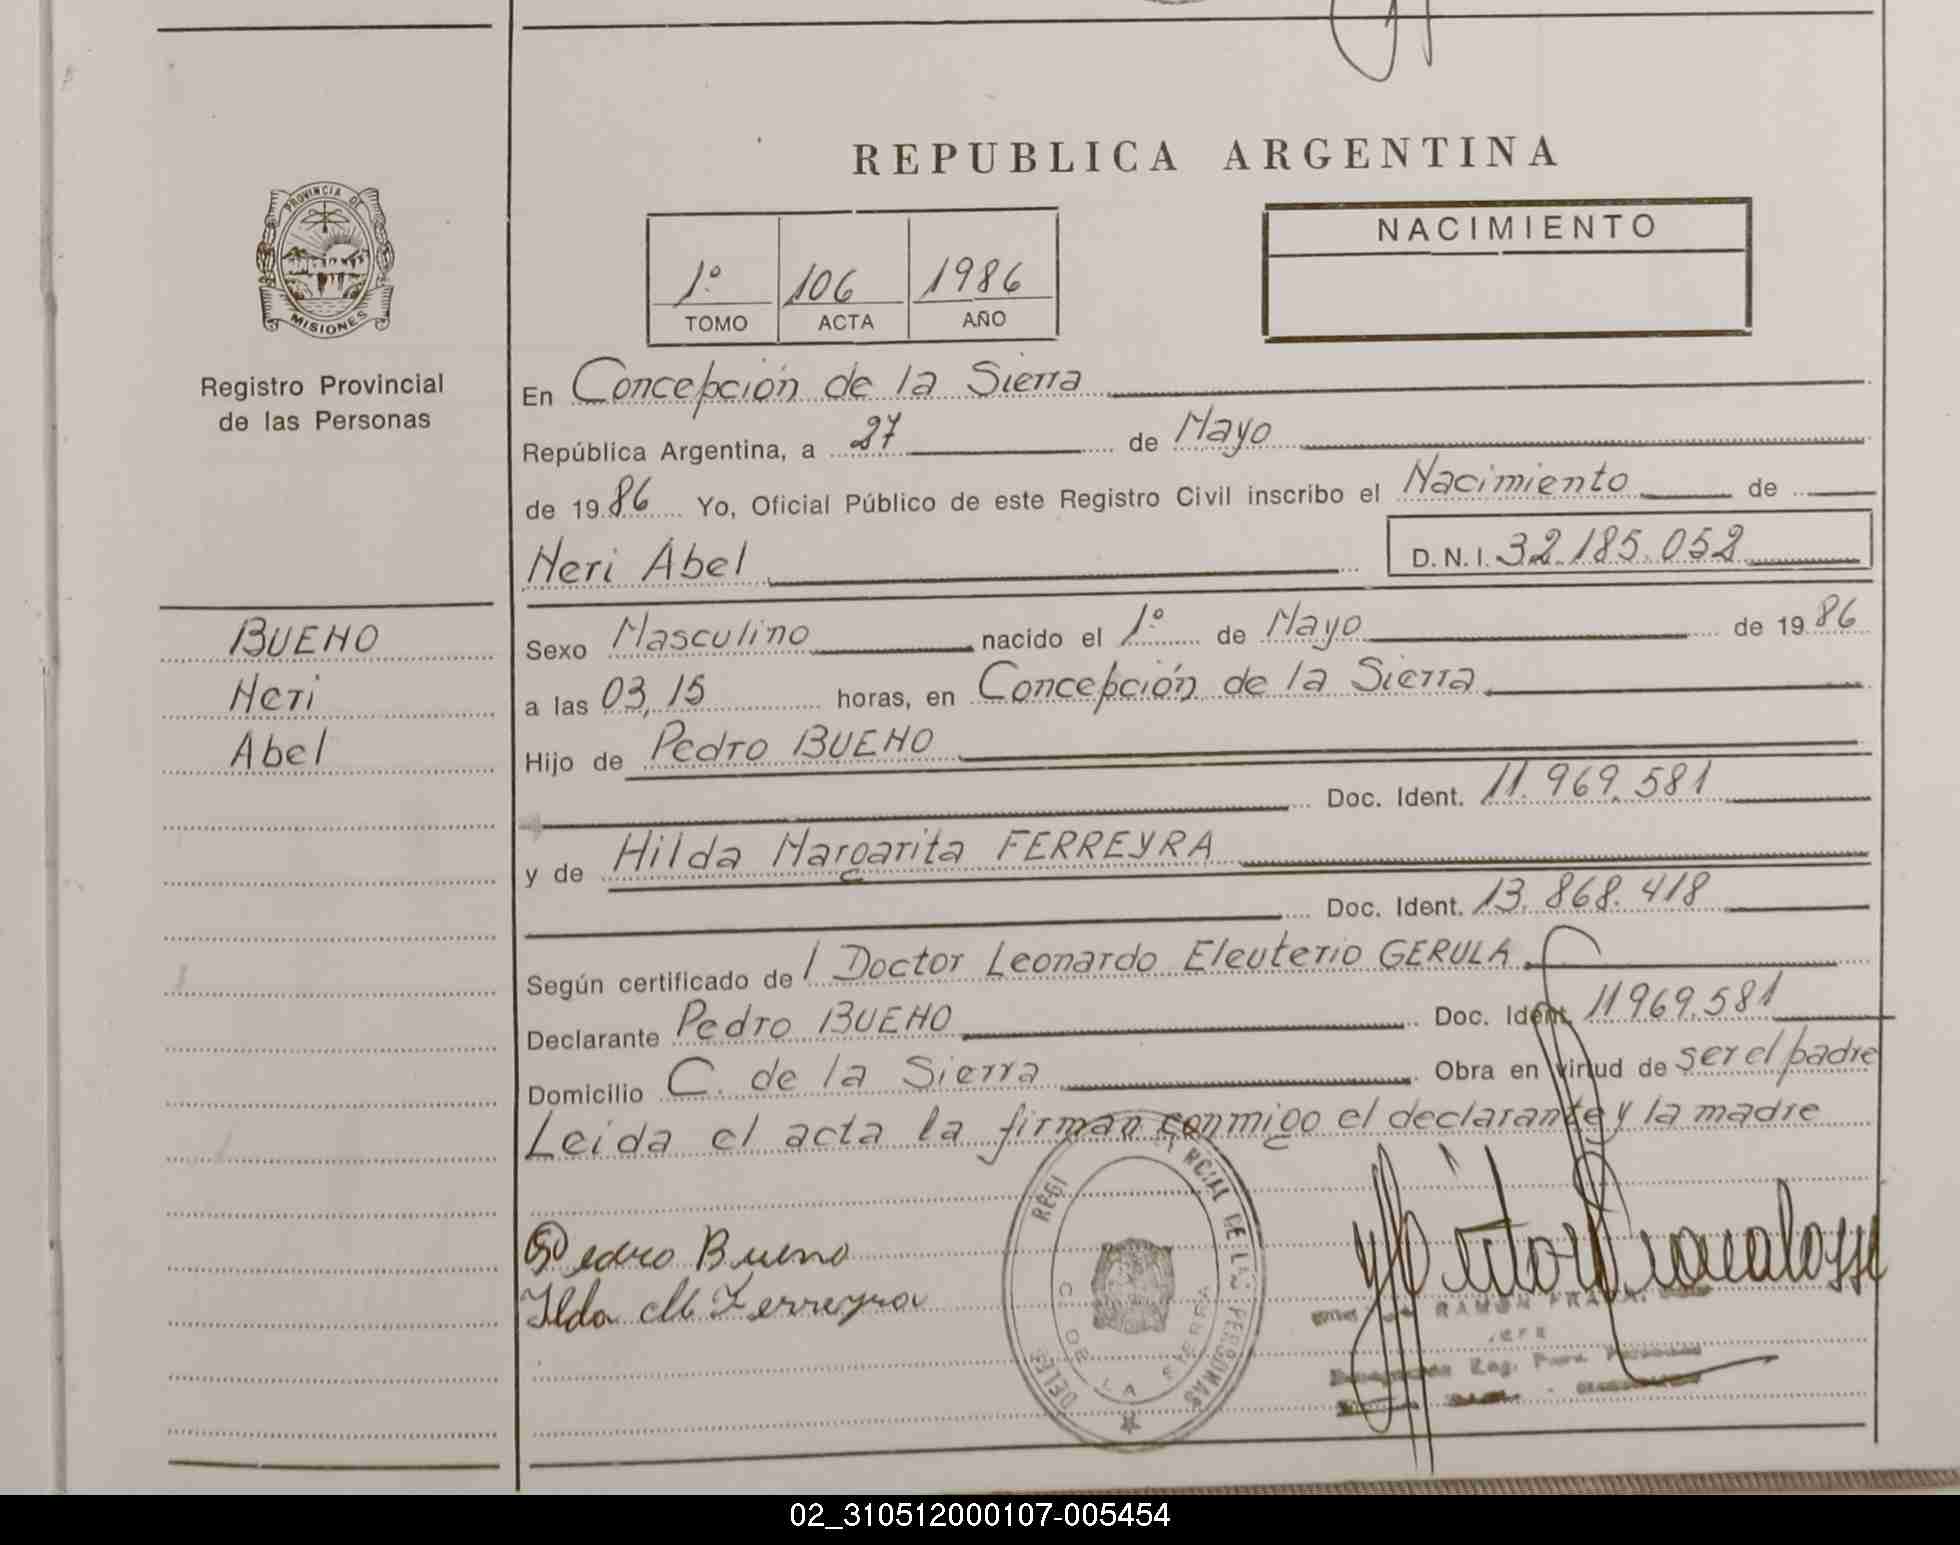 REPUBLICA ARGENTINA
PROVINCIA DE
MISIONES
Registro Provincial
de las Personas
1º 106 1986
TOMO ACTA AÑO
NACIMIENTO
En Concepción de la Sierra
República Argentina, a 27 de Mayo
de 1986 Yo, Oficial Público de este Registro Civil inscribo el Nacimiento de
Neri Abel D.N.I. 32.185.052
BUENO
Neri
Abel
Sexo Masculino nacido el 1º de Mayo de 1986
a las 03,15 horas, en Concepción de la Sierra
Hijo de Pedro BUENO
Doc. Ident. 11.969.581
y de Hilda Margarita FERREYRA
Doc. Ident. 13.868.418
Según certificado de l Doctor Leonardo Eleuterio GERULA
Declarante Pedro BUENO Doc. Ident. 11969.581
Domicilio C. de la Sierra Obra en virtud de ser el padre
Leida el acta la firman conmigo el declarante y la madre
Pedro Bueno
Ilda M Ferreyra
DE LAS PERSONAS
C. DE LA SIERRA
RAMON
02_310512000107-005454